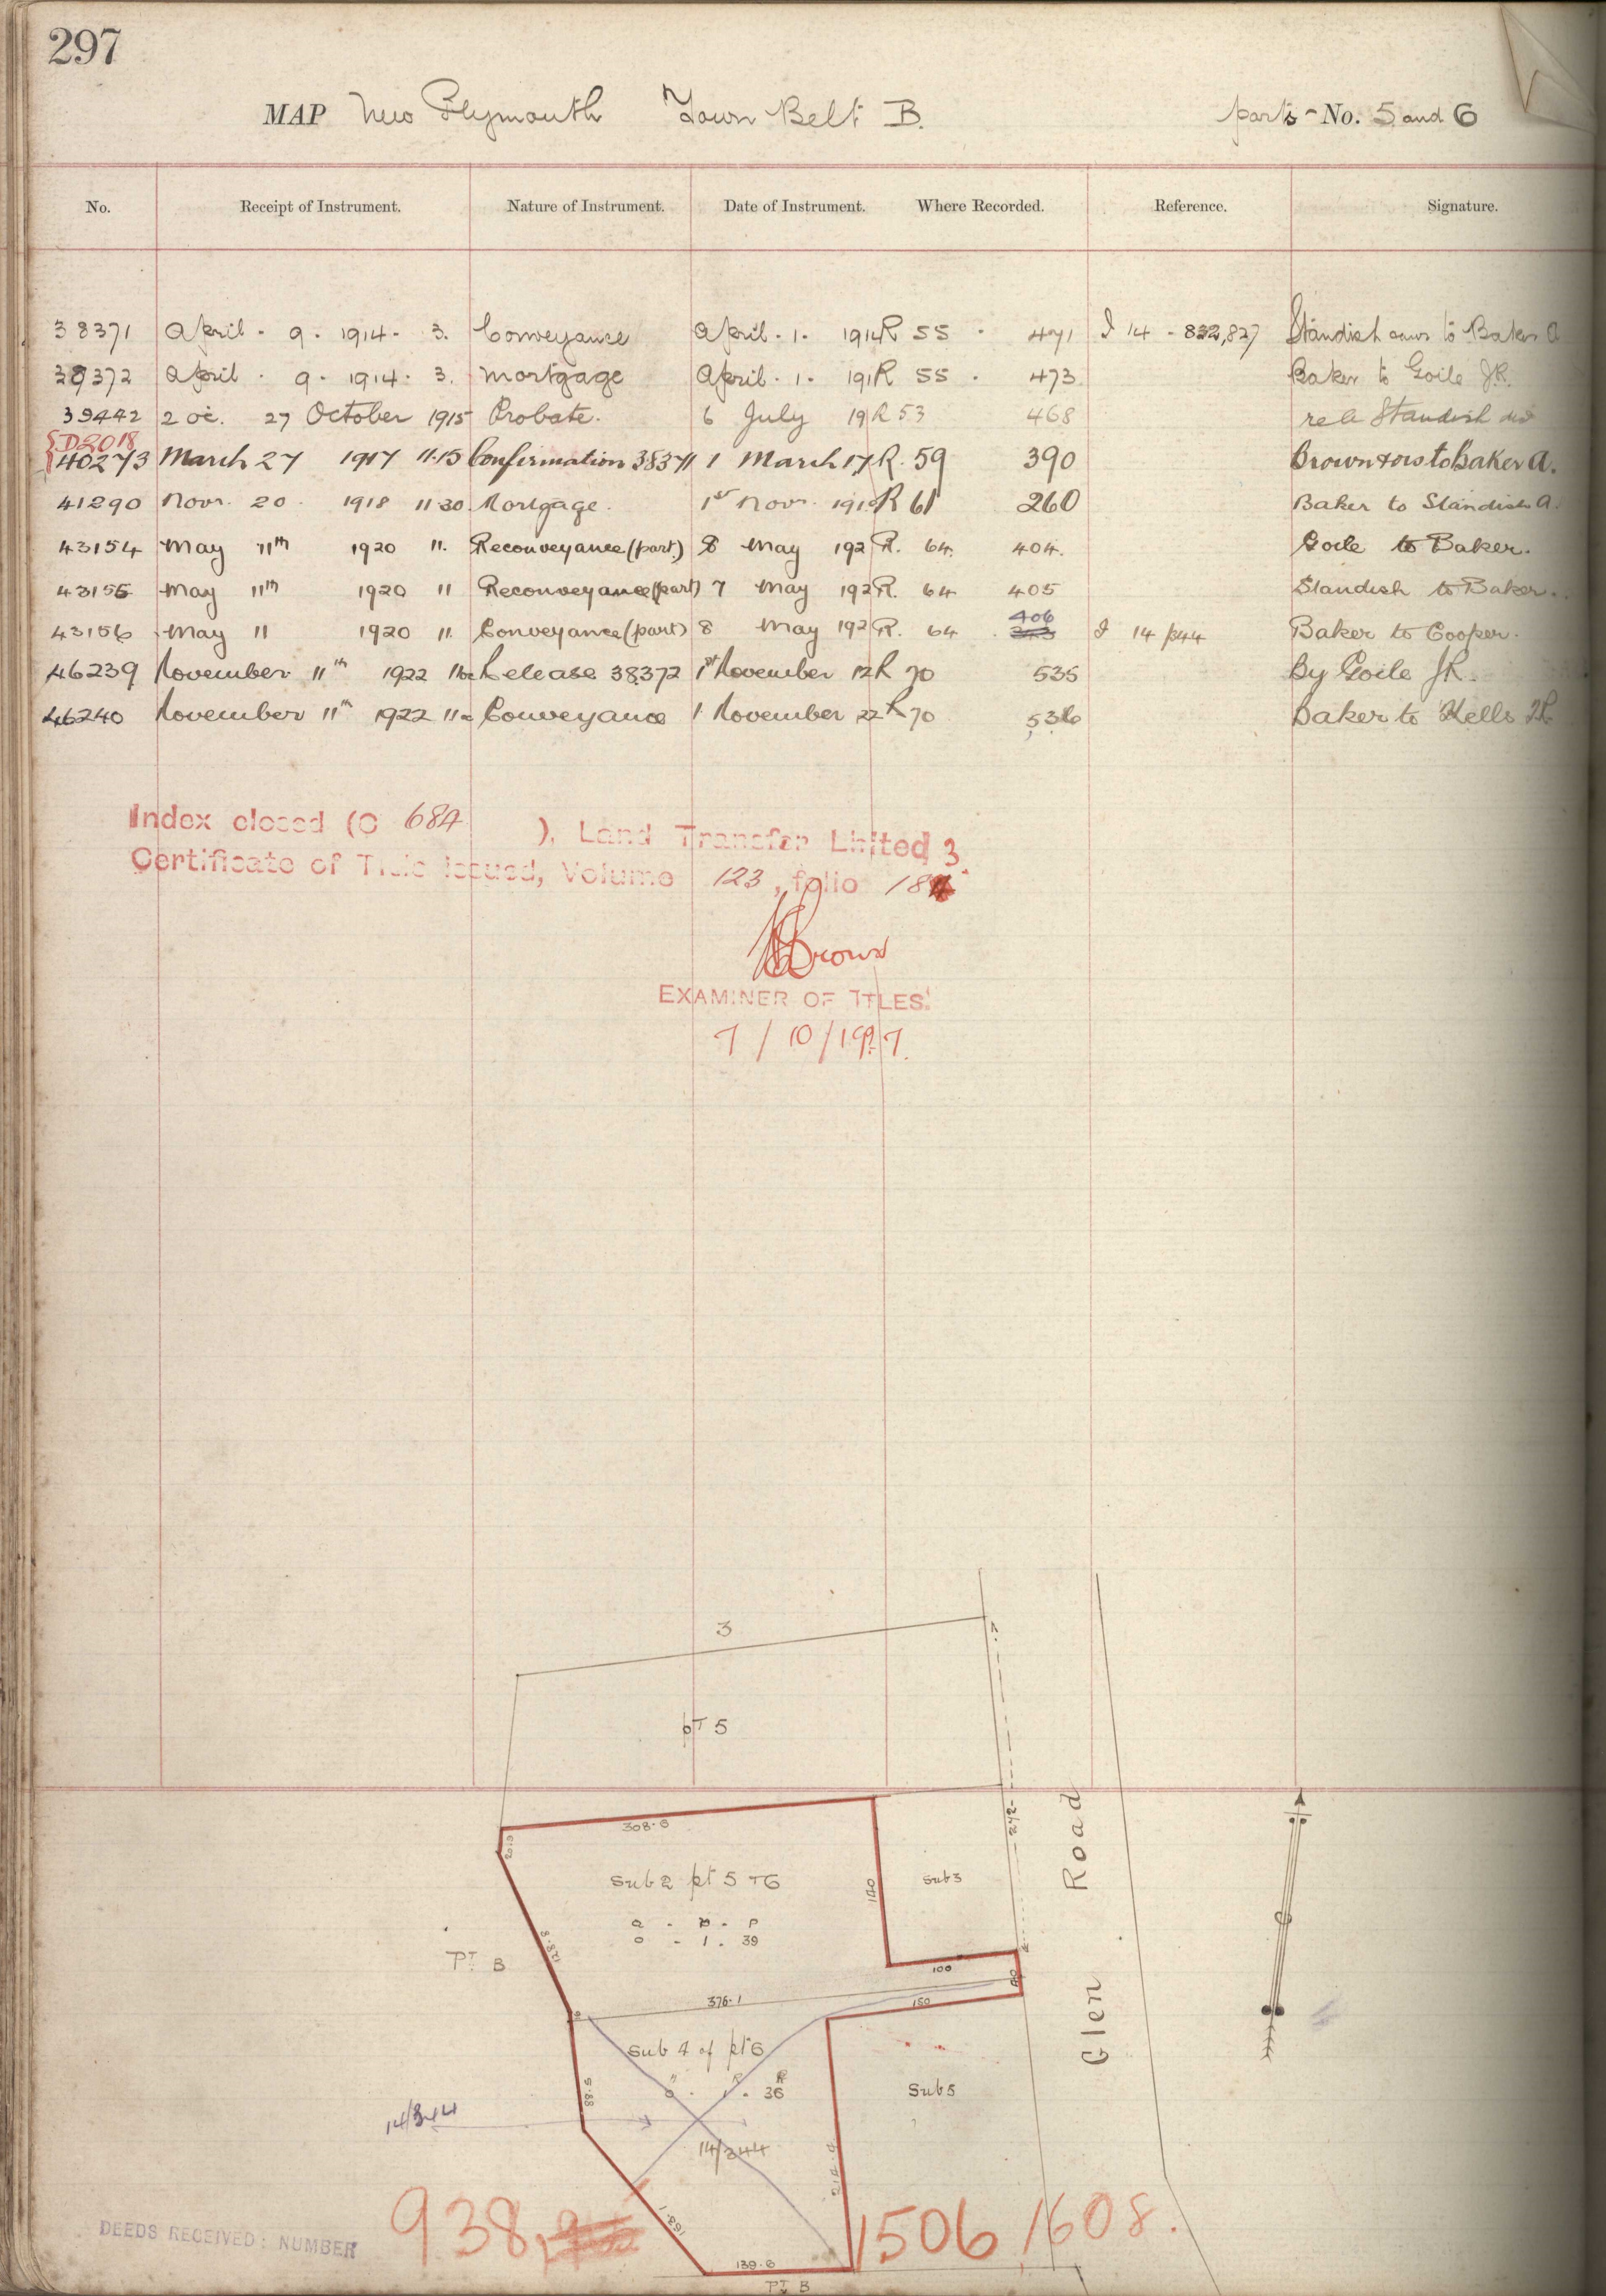 297
MAP New Plymouth Town Belt B. parts - No. 5 and 6
No. Receipt of Instrument. Nature of Instrument. Date of Instrument. Where Recorded. Reference. Signature.
38371 April . 9 . 1914 . 3. Conveyance April . 1 . 1914 R 55 . 471 I 14 - 832,827 Standish to Baker A
38372 April . 9 . 1914 . 3. Mortgage April . 1 . 191 R 55 . 473 Baker to Goile JR.
39442 2 oc. 27 October 1915 Probate. 6 July 19 R 53 468 re Standish
D2018
40273 March 27 1917 11.15 Confirmation 38371 1 March 17 R. 59 390 Brown & ors to Baker A.
41290 Novr. 20 1918 11.30 Mortgage. 1st Novr. 191 R 61 260 Baker to Standish A.
43154 May 11th 1920 11. Reconveyance (part.) 8 May 192 R. 64. 404. Goile to Baker.
43155 May 11th 1920 11 Reconveyance (part) 7 May 192 R. 64 405 Standish to Baker.
43156 May 11 1920 11. Conveyance (part) 8 May 192 R. 64 406 I 14 p344 Baker to Cooper.
46239 November 11th 1922 Release 38372 1st November R 70 535 By Goile JR.
46240 November 11th 1922 Conveyance 1 November 22 R 70 536 Baker to Kells
Index closed (C 684 ), Land Transfer Limited 3
Certificate of Title issued, Volume 123, folio 18
Brown
EXAMINER OF TITLES.
7 / 10 / 1927.
3
pT 5
242
308.6
20.3
Sub 2 pt 5 & 6
a - R - P
0 - 1 . 39
140
Sub 3
Glen Road
128.8
PT B
100
376.1
150
Sub 4 of pt 6
R P
0 - 1 . 36
88.5
Sub 5
14/344
14/344
214.4
168.1
938, 1506, 1608.
139.6
PT B
DEEDS RECEIVED: NUMBER